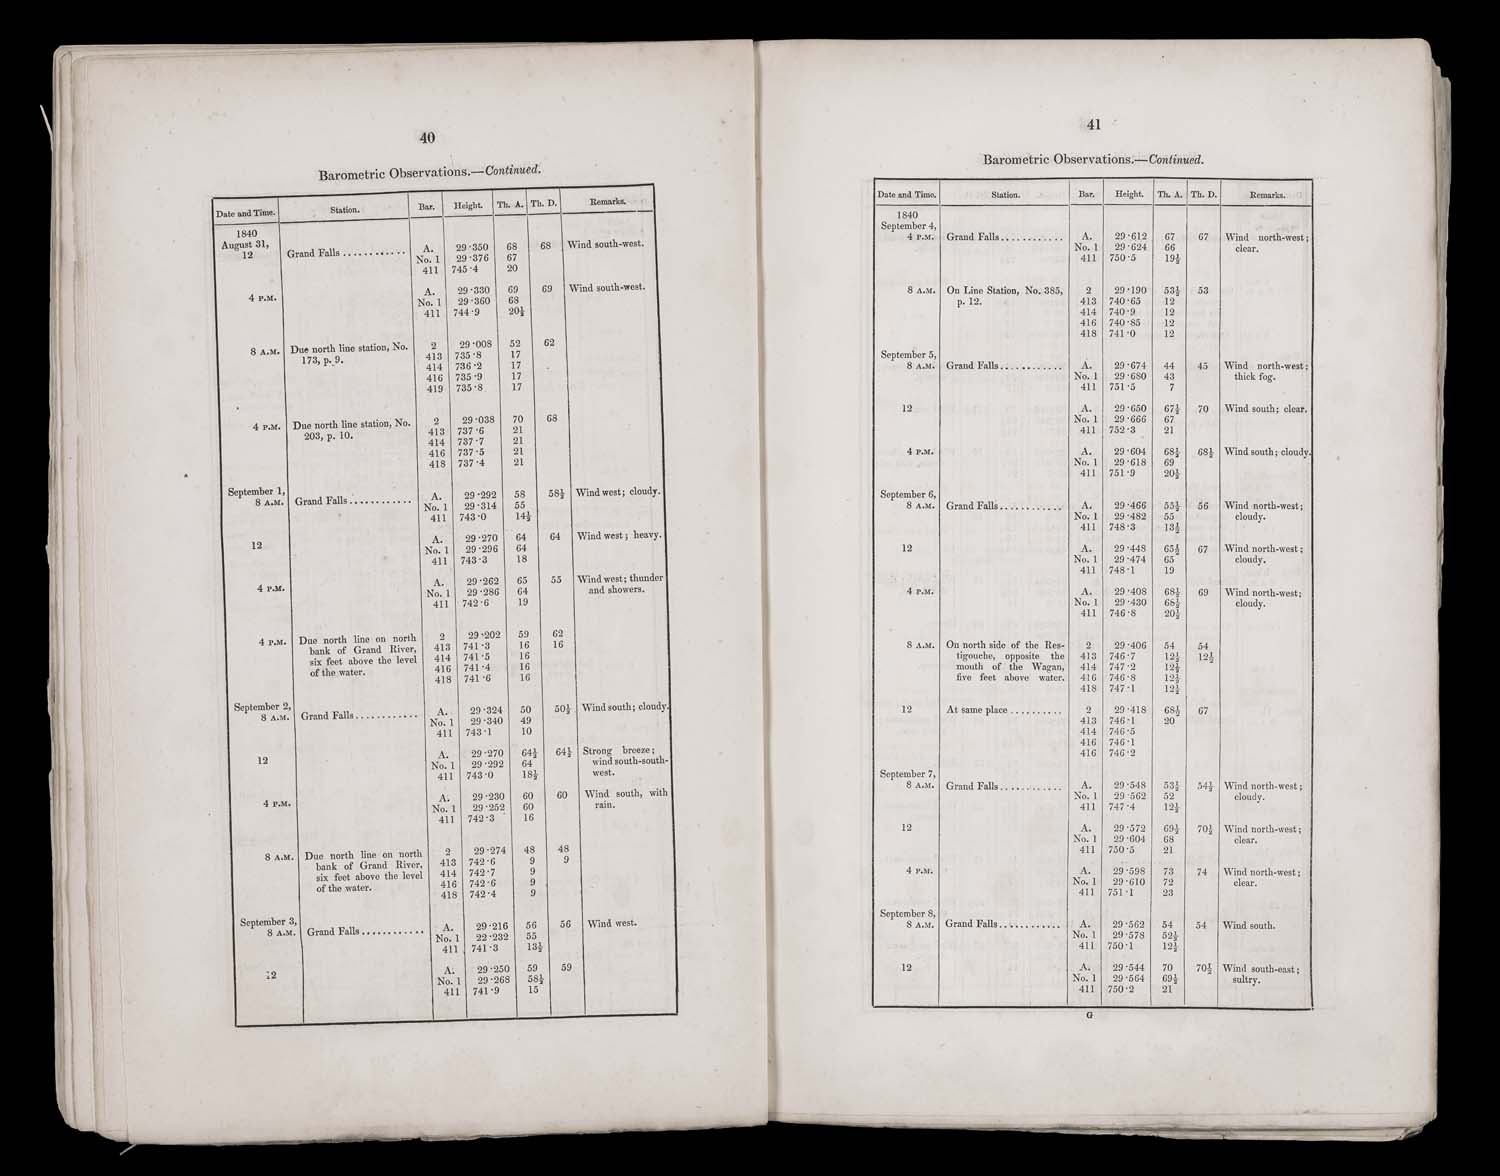 40
Barometric Observations.—Continued.
Date and Time. Station. Bar. Height. Th. A. Th. D. Remarks.
1840
August 31,
12 Grand Falls ............ A. 29·350 68 68 Wind south-west.
No. 1 29·376 67
411 745·4 20
4 P.M. A. 29·330 69 69 Wind south-west.
No. 1 29·360 68
411 744·9 20½
8 A.M. Due north line station, No. 2 29·008 52 62
173, p. 9. 413 735·8 17
414 736·2 17
416 735·9 17
419 735·8 17
4 P.M. Due north line station, No. 2 29·038 70 68
203, p. 10. 413 737·6 21
414 737·7 21
416 737·5 21
418 737·4 21
September 1,
8 A.M. Grand Falls ............ A. 29·292 58 58½ Wind west; cloudy.
No. 1 29·314 55
411 743·0 14½
12 A. 29·270 64 64 Wind west; heavy.
No. 1 29·296 64
411 743·3 18
4 P.M. A. 29·262 65 55 Wind west; thunder
No. 1 29·286 64 and showers.
411 742·6 19
4 P.M. Due north line on north 2 29·202 59 62
bank of Grand River, 413 741·3 16 16
six feet above the level 414 741·5 16
of the water. 416 741·4 16
418 741·6 16
September 2,
8 A.M. Grand Falls ............ A. 29·324 50 50½ Wind south; cloudy.
No. 1 29·340 49
411 743·1 10
12 A. 29·270 64½ 64½ Strong breeze;
No. 1 29·292 64 wind south-south-
411 743·0 18½ west.
4 P.M. A. 29·230 60 60 Wind south, with
No. 1 29·252 60 rain.
411 742·3 16
8 A.M. Due north line on north 2 29·274 48 48
bank of Grand River, 413 742·6 9 9
six feet above the level 414 742·7 9
of the water. 416 742·6 9
418 742·4 9
September 3,
8 A.M. Grand Falls ............ A. 29·216 56 56 Wind west.
No. 1 22·232 55
411 741·3 13½
12 A. 29·250 59 59
No. 1 29·268 58½
411 741·9 15
41
Barometric Observations.—Continued.
Date and Time. Station. Bar. Height. Th. A. Th. D. Remarks.
1840
September 4,
4 P.M. Grand Falls ............ A. 29·612 67 67 Wind north-west;
No. 1 29·624 66 clear.
411 750·5 19½
8 A.M. On Line Station, No. 385, 2 29·190 53½ 53
p. 12. 413 740·65 12
414 740·9 12
416 740·85 12
418 741·0 12
September 5,
8 A.M. Grand Falls ............ A. 29·674 44 45 Wind north-west;
No. 1 29·680 43 thick fog.
411 751·5 7
12 A. 29·650 67½ 70 Wind south; clear.
No. 1 29·666 67
411 752·3 21
4 P.M. A. 29·604 68½ 68½ Wind south; cloudy.
No. 1 29·618 69
411 751·9 20½
September 6,
8 A.M. Grand Falls ............ A. 29·466 55½ 56 Wind north-west;
No. 1 29·482 55 cloudy.
411 748·3 13½
12 A. 29·448 65½ 67 Wind north-west;
No. 1 29·474 65 cloudy.
411 748·1 19
4 P.M. A. 29·408 68½ 69 Wind north-west;
No. 1 29·430 68½ cloudy.
411 746·8 20½
8 A.M. On north side of the Res- 2 29·406 54 54
tigouche, opposite the 413 746·7 12½ 12½
mouth of the Wagan, 414 747·2 12½
five feet above water. 416 746·8 12½
418 747·1 12½
12 At same place .......... 2 29·418 68½ 67
413 746·1 20
414 746·5
416 746·1
416 746·2
September 7,
8 A.M. Grand Falls ............ A. 29·548 53½ 54½ Wind north-west;
No. 1 29·562 52 cloudy.
411 747·4 12½
12 A. 29·572 69½ 70½ Wind north-west;
No. 1 29·604 68 clear.
411 750·5 21
4 P.M. A. 29·598 73 74 Wind north-west;
No. 1 29·610 72 clear.
411 751·1 23
September 8,
8 A.M. Grand Falls ............ A. 29·562 54 54 Wind south.
No. 1 29·578 52½
411 750·1 12½
12 A. 29·544 70 70½ Wind south-east;
No. 1 29·564 69½ sultry.
411 750·2 21
G